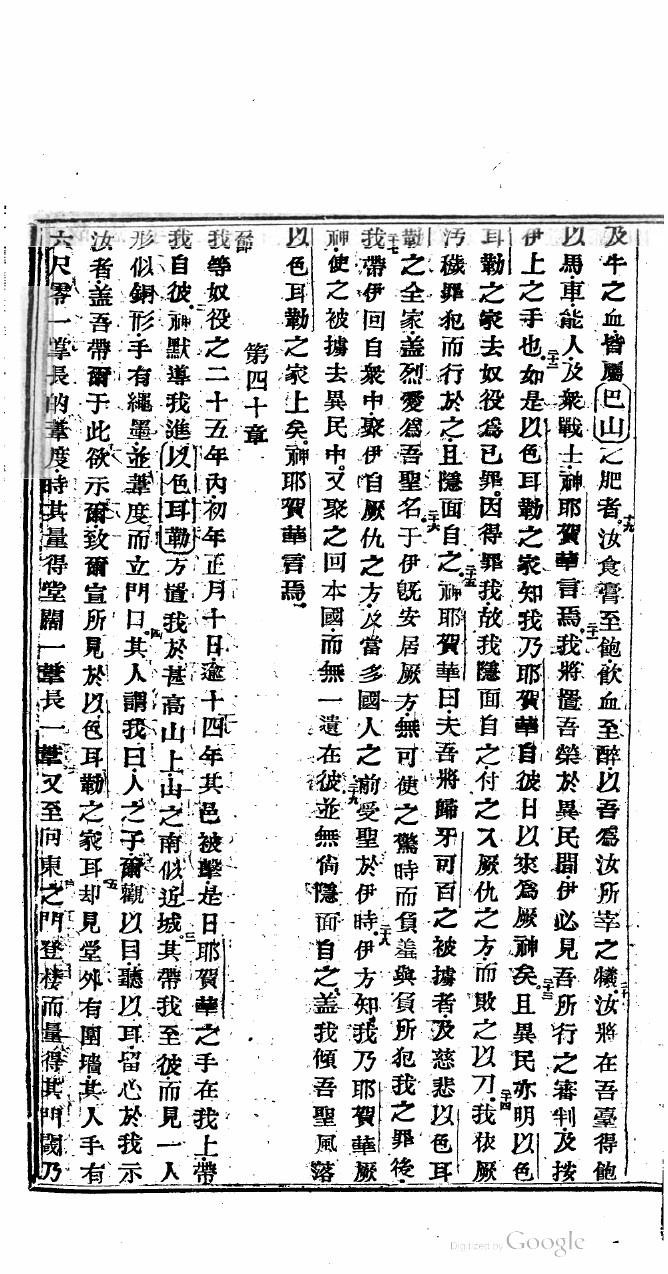 及牛之血皆屬巴山之肥者十九汝食膏至飽飲血至醉以吾爲汝所宰之犧二十汝將在吾臺得飽
以馬車能人及衆戰士神耶賀華言焉二十一我將置吾榮於異民間伊必見吾所行之審判及按
伊上之手也二十二如是以色耳勒之家知我乃耶賀華自彼日以來爲厥神矣二十三且異民亦明以色
耳勒之家去奴役爲己罪因得罪我故我隱面自之付之入厥仇之方而敗之以刀二十四我依厥
污穢罪犯而行於之且隱面自之二十五神耶賀華曰夫吾將歸牙可百之被擄者及慈悲以色耳
勒之全家盖烈愛爲吾聖名二十六于伊旣安居厥方無可使之驚時而負羞與負所犯我之罪後
二十七我帶伊回自衆中聚伊自厥仇之方及當多國人之前受聖於伊時二十八伊方知我乃耶賀華厥
神使之被擄去異民中又聚之回本國而無一遺在彼二十九並無尙隱面自之盖我傾吾聖風落
以色耳勒之家上矣神耶賀華言焉
第四十章
我等奴役之二十五年內初年正月十日逾十四年其邑被擊是日耶賀華之手在我上帶
我自彼二神默導我進以色耳勒方置我於甚高山上山之南似近城三其帶我至彼而見一人
形似銅形手有繩墨並葦度而立門口四其人謂我曰人之子爾觀以目聽以耳留心於我示
汝者盖吾帶爾于此欲示爾致爾宣所見於以色耳勒之家耳五却見堂外有圍墻其人手有
六尺零一掌長的葦度時其量得堂闊一葦長一葦六又至向東之門登樓而量得其門閾乃
Digitized by Google